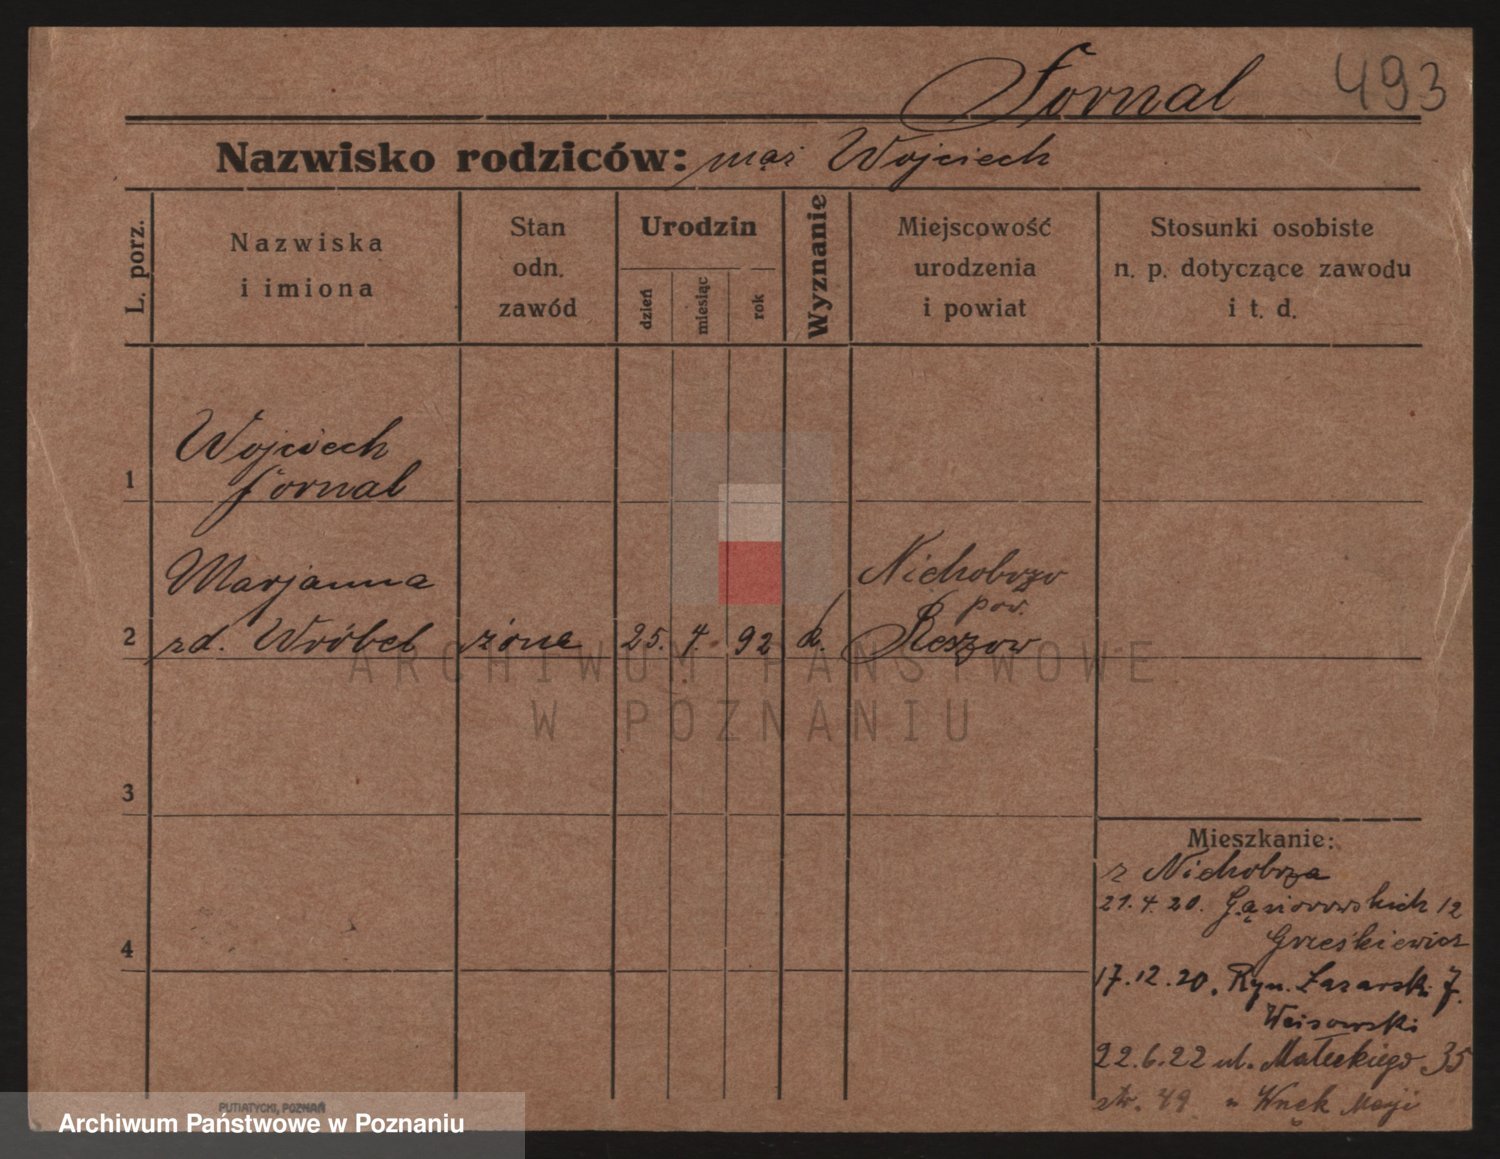 Fornal 493
Nazwisko rodziców: mąż Wojciech
L. porz.
Nazwiska
i imiona
Stan
odn.
zawód
Urodzin
dzień
miesiąc
rok
Wyznanie
Miejscowość
urodzenia
i powiat
Stosunki osobiste
n. p. dotyczące zawodu
i t. d.
Wojciech
1 Fornal
Marjanna Nichobrzo
pow.
2 zd. Wróbel żona 25. 4. 92 k. Reszow
ARCHIWUM PAŃSTWOWE
W POZNANIU
3
Mieszkanie:
z Nichobrza
21.4.20. Gąsiorowskich 12
4 Grześkiewicz
17.12.20. Ryn. Łazarski 7.
Weisowski
22.6.22 ul. Małeckiego 35
49 u Wnęk
PUTIATYCKI, POZNAŃ
Archiwum Państwowe w Poznaniu